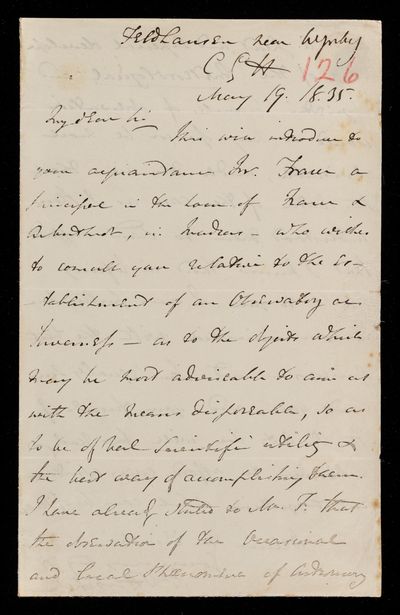 Feldhausen near Wynberg
C G H 126
May 19. 1835.
My dear Sir
This will introduce to
your acquaintance Mr. Fraser a
principal in the house of &
Arbuthnot, in Madras - who wishes
to consult you relative to the es-
-tablishment of an Observatory at
Inverness - as to the objects which
may be most adviseable to aim at
with the means disposeable, so as
to be of real scientific utility &
the best way of accomplishing them.
I have already stated to Mr. F. that
the observation of the Occasional
and local Phænomena of Astronomy